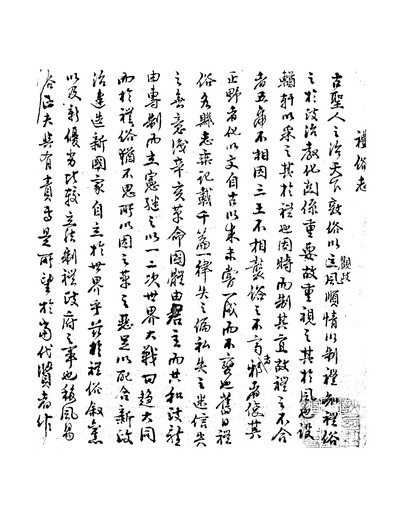 禮俗志
古聖人之治天下敦俗以立風順情以制禮知禮俗
之於政治教化關係重要故重視之其於風也設
輶軒以采之其於禮也因時而制其宜故禮之不合
者五帝不相因三王不相襲俗之不其
正野者化以文自古以來未嘗一成而不變也舊日禮
俗各縣志乘記載千篇一律失之偏私失之迷信失
之無意識辛亥革命國體由君主而共和政體
由專制而立憲繼之以一二次世界大戰日趨大同
而於禮俗猶不思所以因之革之惡足以配合新政
治建造新國家自立於世界乎茲於禮俗敘舊
以及新優劣比較立法制禮政府之事也移風易
俗匹夫與有責焉是所望於當代賢者作